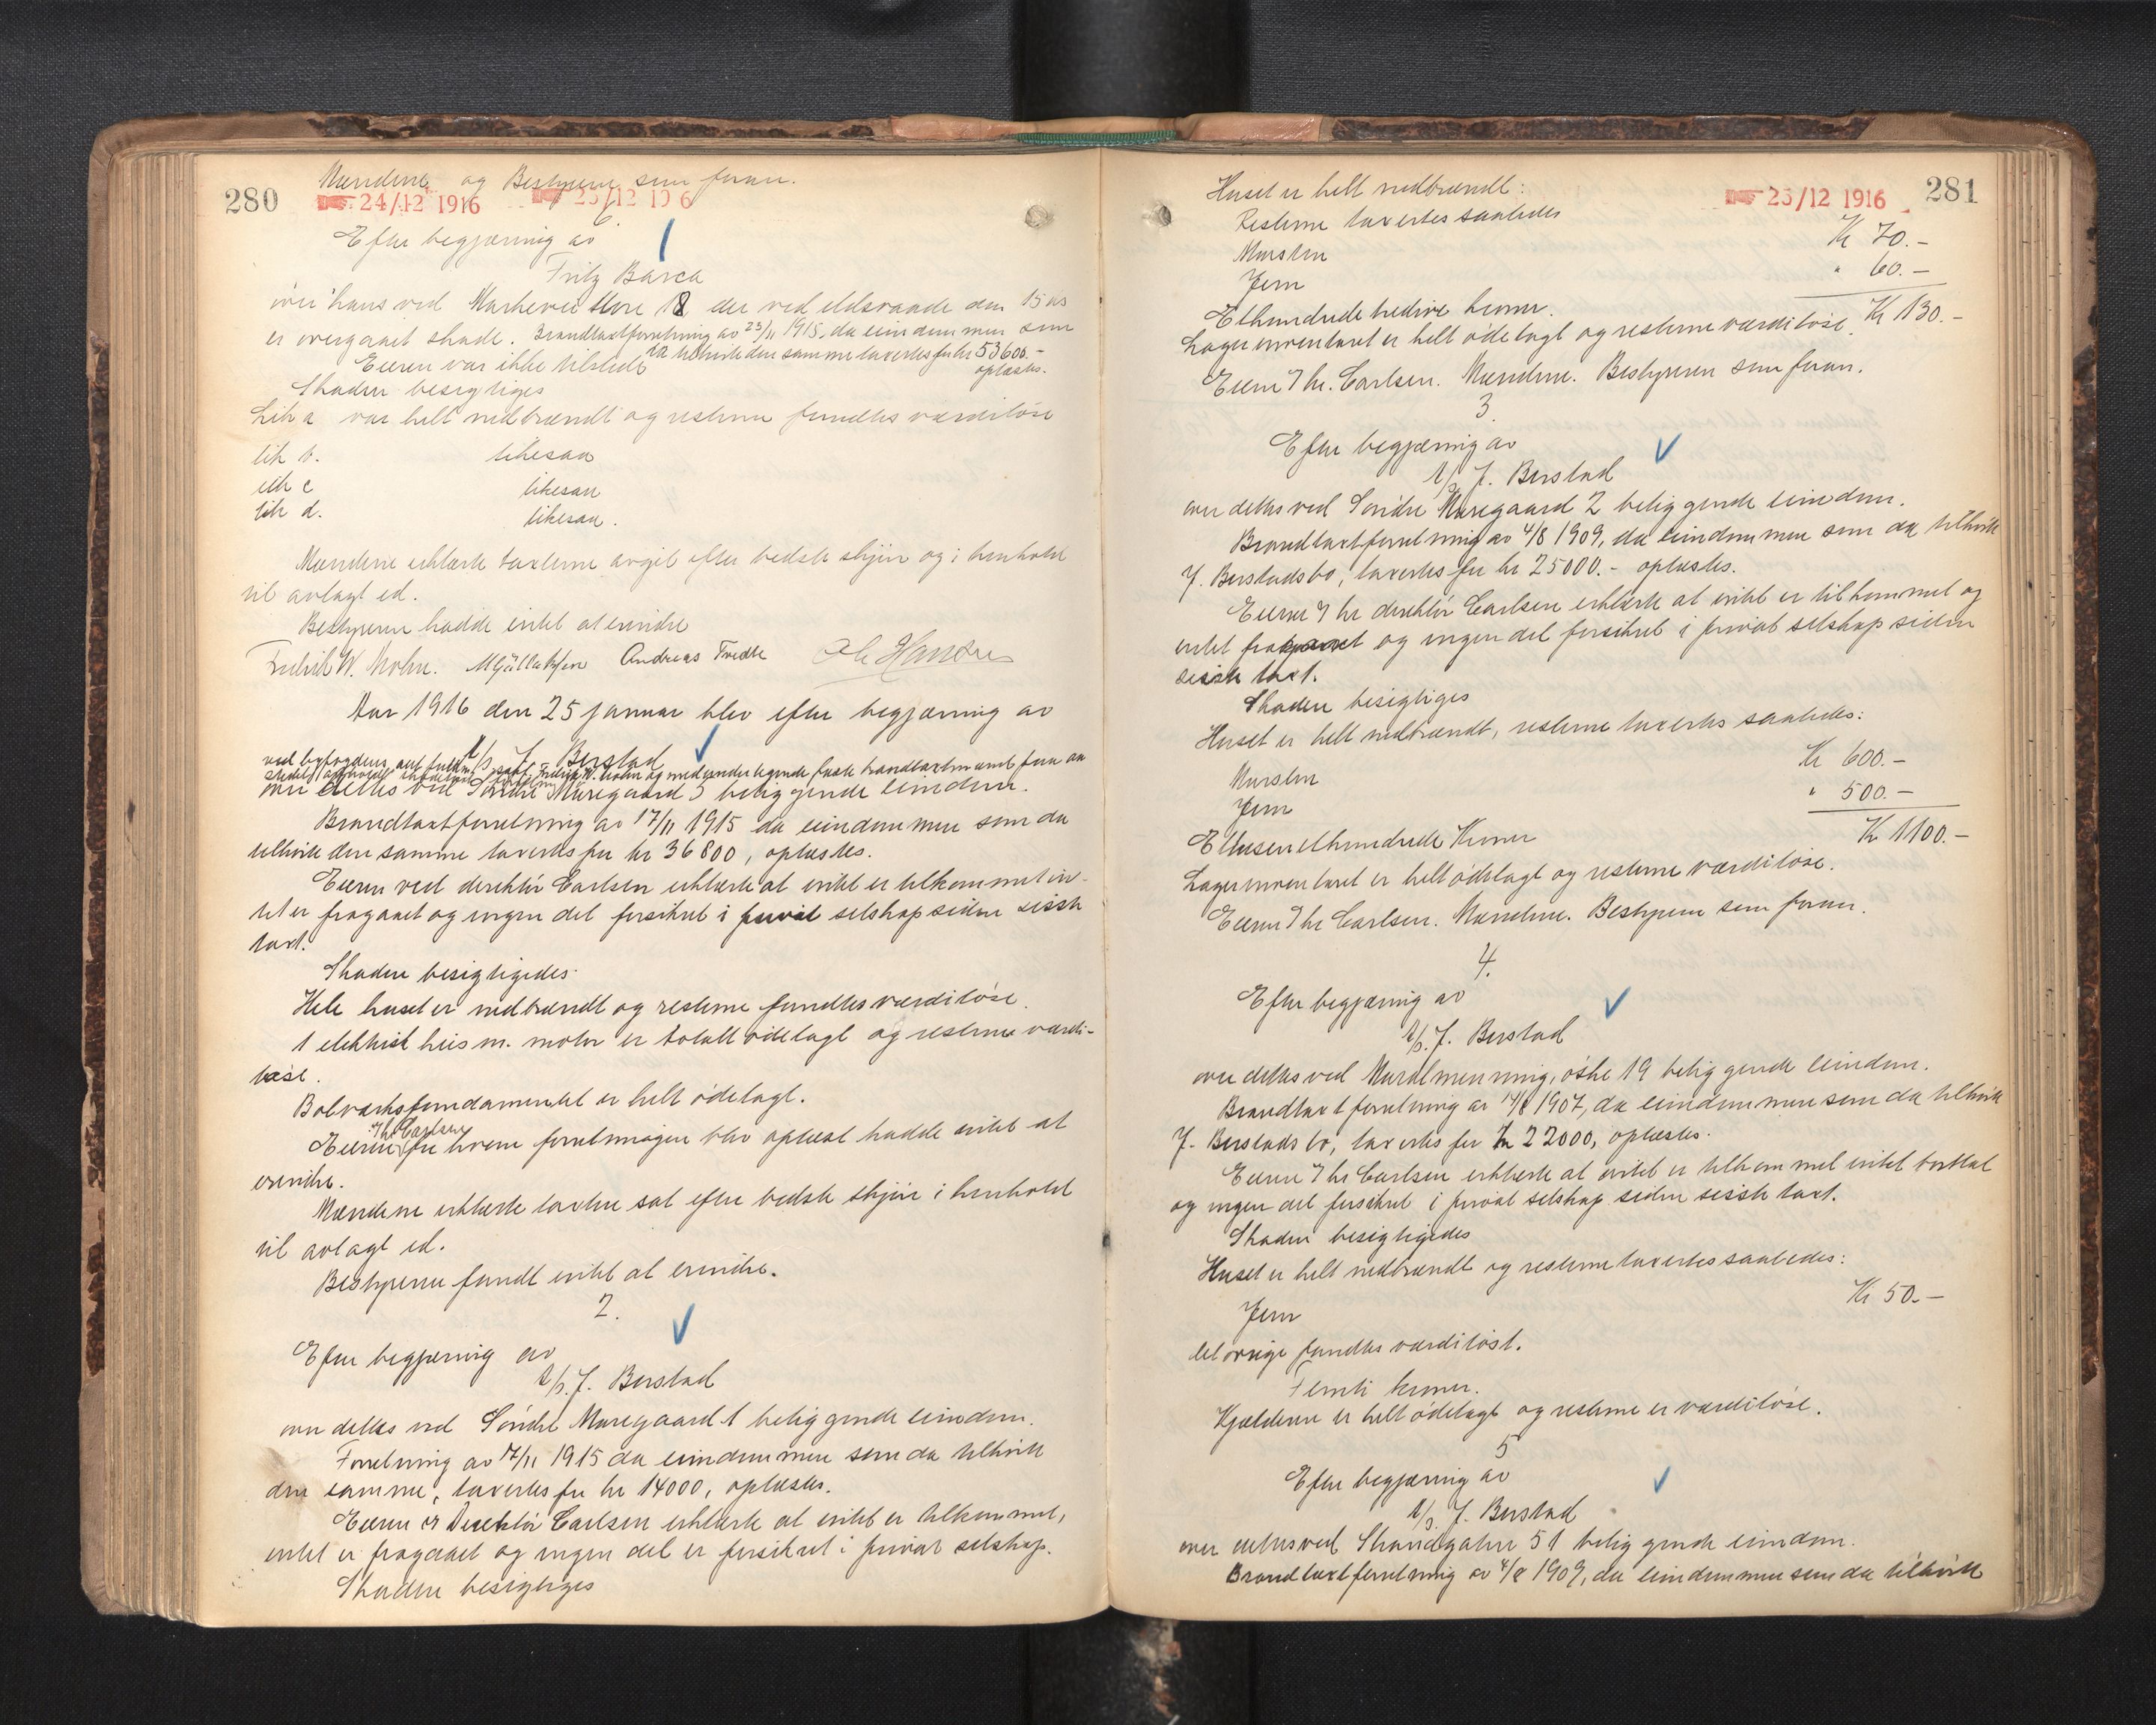 280
Mændene og Bestyreren som foran.
24/12 1916 25/12 1916
6.
Efter begjæring av
Fritz Barca
over hans ved Markeveie store 18 der ved eldsvaade den 15 ds
er overgaaet skade. Brandtaxtforretning av 23/11 1915, da eiendommen som
da tilhørte den samme taxertes for kr 53600.-
Eieren var ikke tilstede oplæstes.
Skaden besigtiges
Lit a var helt nedbrændt og resterne fandtes værdiløse
lit b. likesaa
lit c likesaa
lit d. likesaa.
Mændene erklærte taxterne avgit efter bedste skjøn og i henhold
til avlagt ed.
Bestyreren hadde intet at erindre
Fredrik W. Mohn. Andreas Tvedte Ole Hansen
Aar 1916 den 25 januar blev efter begjæring av
A/S J. Berstad
over dettes ved Søndre Muregaard 3 beliggende eiendom.
Brandtaxtforretning av 17/11 1915 da eiendommen som da
tilhørte den samme taxertes for kr 36800, oplæstes.
Eieren ved direktør Carlsen erklærte at intet er tilkommet in-
tet er fragaaet og ingen del forsikret i privat selskap siden sisste
taxt.
Skaden besigtigedes.
Hele huset er nedbrændt og resterne fandtes værdiløse.
1 elektrisk heis m. motor er totalt ødelagt og resterne værdi-
løse.
Bolverksfundamentet er helt ødelagt.
Thr Carlsen
Eieren for hvem forretningen blev oplæst hadde intet at
erindre.
Mændene erklærte taxten sat efter bedste skjøn i henhold
til avlagt ed.
Bestyreren fandt intet at erindre.
2.
Efter begjæring av
A/S. J. Berstad
over dettes ved Søndre Muregaard 1 beliggende eiendom.
Forretning av 17/11 1915 da eiendommen som da tilhørte
den samme, taxertes for kr 14000, oplæstes.
Eieren v Direktør Carlsen erklærte at intet er tilkommet,
intet er fragaaet og ingen del er forsikret i privat selskap.
Skaden besigtiges
281
25/12 1916
Huset er helt nedbrændt:
Resterne taxertes saaledes
Mursten Kr 70.-
Jern " 60.-
Ethundrede tredive kroner. Kr 130.-
Lagerinventaret er helt ødelagt og resterne værdiløse.
Eieren Thr. Carlsen. Mændene. Bestyreren som foran.
3
Efter begjæring av
A/S J. Berstad
over dettes ved Søndre Muregaard 2 beliggende eiendom.
Brandtaxtforretning av 4/8 1909, da eiendommen som da tilhørte
J. Berstads bo, taxertes for kr 25000.- oplæstes.
Eieren Thr direktør Carlsen erklærte at intet er tilkommet og
intet fragaaet og ingen del forsikret i privat selskap siden
sisste taxt.
Skaden besigtiges
Huset er helt nedbrændt, resterne taxertes saaledes:
Mursten Kr 600.-
Jern " 500.-
Ettusenethundrede Kroner Kr 1100.-
Lagerinventaret er helt ødelagt og resterne værdiløse.
Eieren Thr Carlsen. Mændene. Bestyreren som foran.
4.
Efter begjæring av
A/S. J. Berstad
over dettes ved Muralmenning, østre 19 beliggende eiendom.
Brandtaxtforretning av 14/8 1907, da eiendommen som da tilhørte
J. Berstads bo, taxertes for kr 22000, oplæstes.
Eieren Thr Carlsen erklærte at intet er tilkommet intet borttat
og ingen del forsikret i privat selskap siden sisste taxt.
Skaden besigtigedes
Huset er helt nedbrændt og resterne taxertes saaledes:
Jern Kr 50.-
det øvrige fandtes værdiløst.
Femti kroner.
Kjælderen er helt ødelagt og resterne er værdiløse.
5
Efter begjæring av
A/S. J. Berstad
over dettes ved Strandgaten 51 beliggende eiendom.
Brandtaxtforretning av 4/8 1909, da eiendommen som da tilhørte